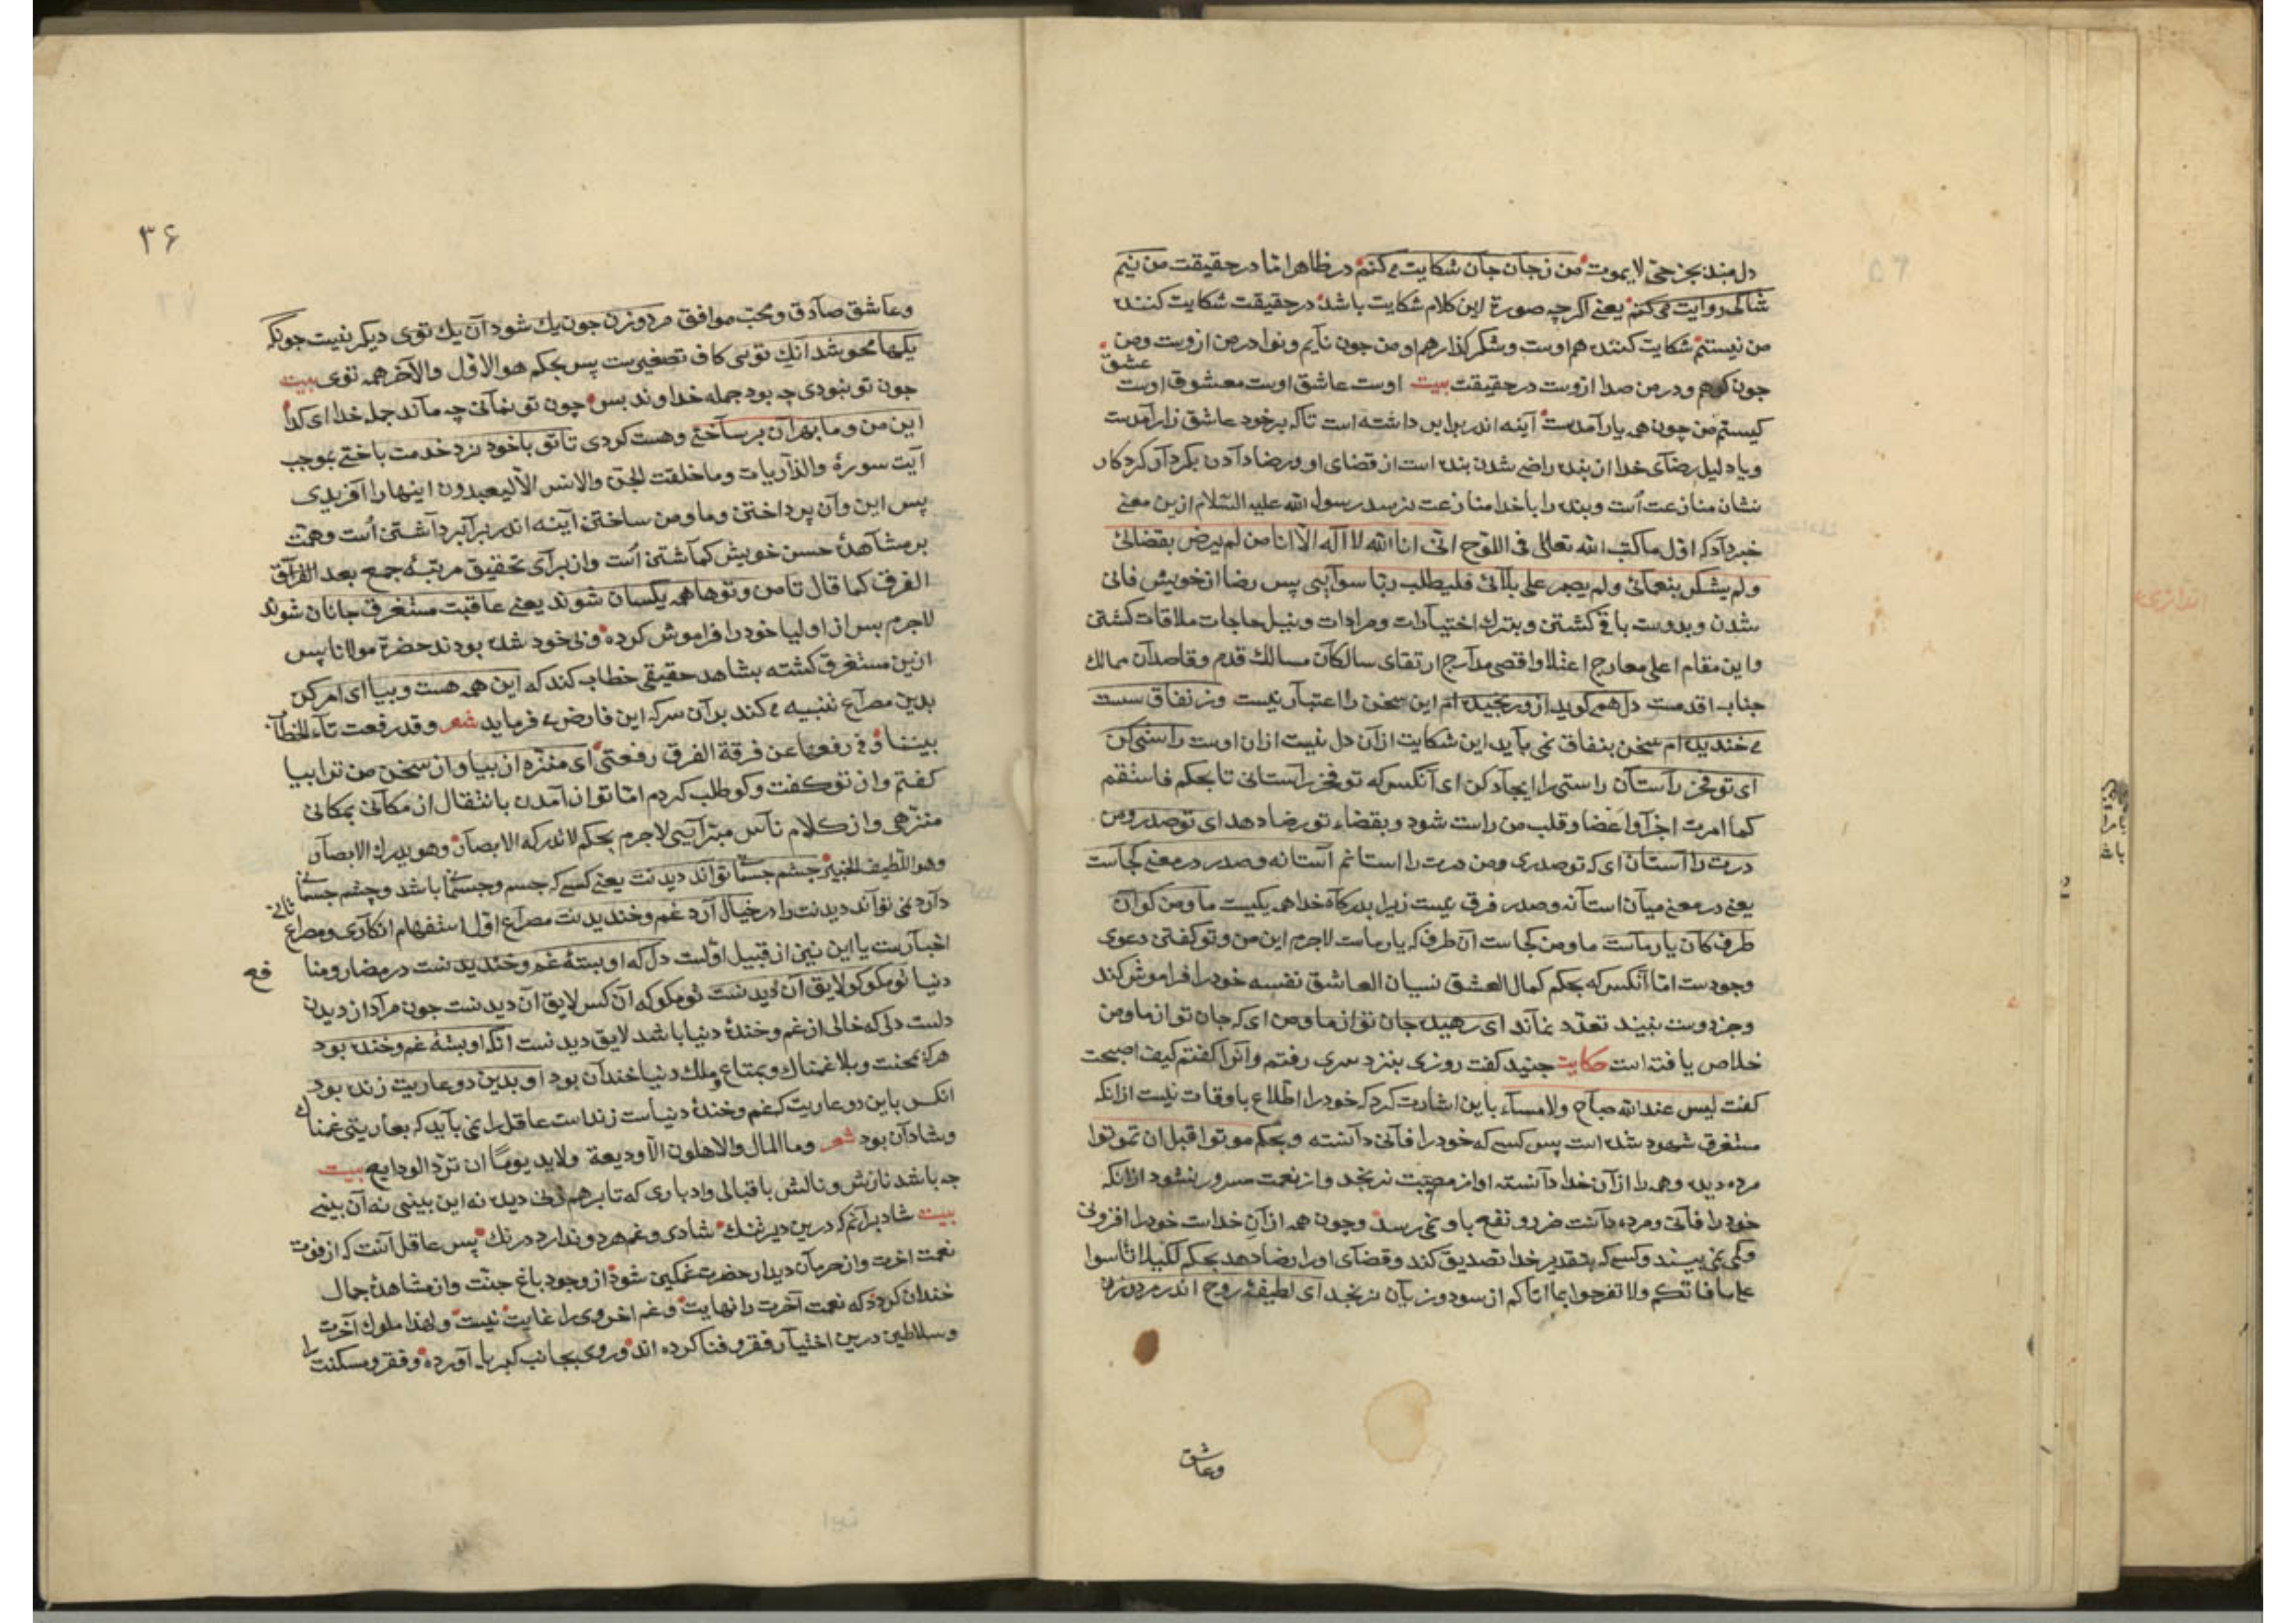 دل مبند بجز حی لا یموت من زجان جان شکایت می کنم در ظاهر اما در حقیقت من نیم
شاکی روایت می کنم یعنی اگرچه صورة این کلام شکایت باشد در حقیقت شکایت کننده
من نیستم شکایت کننده هم اوست و شکر گذار هم او من چون نایم و نوا در من ازوست و من
چون کوهم و در من صدا ازوست در حقیقت بیت اوست عاشق اوست معشوق اوست عشق
کیستم من چون همی یار آمدست آینه اندر برابر داشته است تا که بر خود عاشق زار آمدست
و یا دلیل رضای خدا از بنده راضی شدن بنده است از قضای او و رضا دادن بکردار کردکار
نشان منازعت است و بنده را با خدا منازعت نرسد رسول الله علیه السلام ازین معنی
خبر داد که اول ما کتب الله تعالی فی اللوح انی انا الله لا اله الا انا من لم یرض بقضائی
ولم یشکر بنعمائی ولم یصبر علی بلائی فلیطلب ربا سوائی پس رضا از خویش فانی
شدن و بدوست باقی کشتن و بترک اختیارات و مرادات و بنیل حاجات ملاقات کشتن
و این مقام اعلی معارج اعتلا و اقصی مدارج ارتقای سالکان مسالک قدم و قاصدان ممالک
جناب اقدمست دل همی کوید ازو رنجیده ام این سخن را اعتبار نیست وز نفاق سست
می خندیده ام سخن بنفاق نمی باید این شکایت از آن دل نیست از ان اوست راستی کن
ای تو فخر راستان راستی را ایجاد کن ای آنکس که تو فخر راستانی تا بحکم فاستقم
کما امرت اجزا و اعضا و قلب من راست شود و بقضاء تو رضا دهد ای تو صدر و من
درت را آستان ای که تو صدری و من درت را استانم آستانه و صدر در معنی کجاست
یعنی در معنی میان استانه و صدر فرق نیست زیرا بدرکاه خدا همه یکیست ما و من کو آن
طرف کان یار ماست ما و من کجاست آن طرف که یار ماست لاجرم این من و تو کفتن دعوی
وجودست اما آنکس که بحکم کمال العشق نسیان العاشق نفسه خود را فراموش کند
و جز دوست نبیند تعدد نماند ای رهیده جان تو از ما و من ای که جان تو از ما و من
خلاص یافته است حکایت جنید کفت روزی بنزد سری رفتم و انرا کفتم کیف اصبحت
کفت لیس عند الله صباح ولا مساء باین اشارت کرد که خود را اطلاع باوقات نیست ازانکه
مستغرق شهود شده است پس کسی که خود را فانی دانسته و بحکم موتوا قبل ان تموتوا
مرده دیده و همه را از آن خدا دانسته او از مصیبت نرنجد و از نعمت مسرور نشود ازانکه
خود را فانی و مرده دانست ضر و نفع باو نمی رسد و چون همه از آن خداست خود را افزونی
و کمی نمی بیند و کسی که بتقدیر خدا تصدیق کند و قضای او را رضا دهد بحکم لکیلا تأسوا
علی ما فاتکم ولا تفرحوا بما اتاکم از سود و زیان نرنجد ای لطیفه روح اندر مرد و زن
وعاشق
۳۶
وعاشق صادق و محب موافق مرد و زن چون یک شود آن یک توی دیکر نیست چونکه
یکها محو شد انک تویی کاف تصغیرست پس بحکم هو الاول والآخر همه توی بیت
چون تو نبودی چه بود جمله خداوند بس چون تو نمانی چه ماند جمله خدا ای کدا
این من و ما بهر آن بر ساختی و هست کردی تا تو با خود نرد خدمت باختی بموجب
آیت سورة والذاریات وما خلقت الجن والانس الا لیعبدون اینها را آفریدی
پس این و آن پرداختن و ما و من ساختن آینه اندر برابر داشتن است و همت
بر مشاهدۀ حسن خویش کماشتن است و از برای تحقیق مرتبۀ جمع بعد الفراق
الفرق کما قال تا من و توها همه یکسان شوند یعنی عاقبت مستغرق جانان شوند
لاجرم بس از اولیا خود را فراموش کرده و بی خود شده بودند حضرة مولانا پس
ازین مستغرق کشته بشاهد حقیقی خطاب کند که این همه هست و بیا ای امر کن
بدین مصراع تنبیه می کند بر آن سر که ابن فارض می فرماید شعر وقد رفعت تاء الخطاب
بیننا وفی رفعها عن فرقة الفرق رفعتی ای منزه از بیا و از سخن من ترا بیا
کفتم و از تو کفت و کو طلب کردم اما تو از آمدن بانتقال از مکانی بمکانی
منزهی و از کلام ناس مبرایی لاجرم بحکم لا تدرکه الابصار وهو یدرک الابصار
وهو اللطیف الخبیر چشم جسمانی تواند دیدنت یعنی کسی که جسم و جسمانی باشد و چشم جسمانی
دارد نمی تواند دیدنت را در خیال آرد غم و خندیدنت مصراع اول استفهام انکاری و مصراع ثانی
اخبارست یا این نیز از قبیل اولست دل که او بستۀ غم و خندیدنست در مضار و منا فع
دنیا تو مکو کو لایق آن دیدنست تو مکو که آن کس لایق آن دیدنست چون مراد از دیدن
دلست دلی که خالی از غم و خندۀ دنیا باشد لایق دیدنست آنکه او بستۀ غم و خنده بود
هر که بمحنت و بلا غمناک و بمتاع و ملک دنیا خندان بود او بدین دو عاریت زنده بود
انکس باین دو عاریت که غم و خندۀ دنیاست زنداست عاقل را نمی باید که بعاریتی غمناک
و شادان بود شعر وما المال والاهلون الا ودیعة ولابد یوما ان ترد الودایع بیت
چه باشد نازش و نالش باقبالی و ادباری که تا برهم زنی دیده نه این بینی نه آن بینی
بیت شاد برآنم که درین دیر تنک شادی و غم هر دو ندارد درنک پس عاقل آنست که از فوت
نعمت اخرت و از حرمان دیدار حضرت غمکین شود از وجود باغ جنت و از مشاهدۀ جمال
خندان کردد که نعمت آخرت را نهایت و غم اخروی را غایت نیست و لهذا ملوک آخرت
و سلاطین درین اختیار فقر و فنا کرده اند و روی بجانب کبریا آورده و فقر و مسکنت را